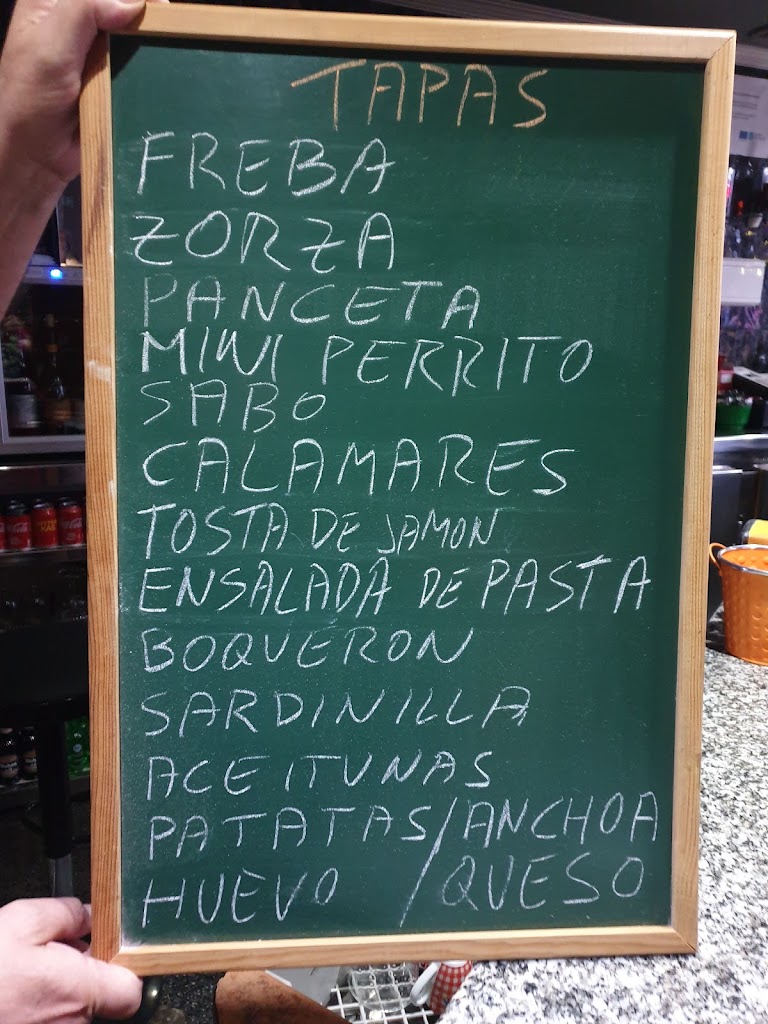 TAPAS
FREBA
ZORZA
PANCETA
MINI PERRITO
SABO
CALAMARES
TOSTA DE JAMON
ENSALADA DE PASTA
BOQUERON
SARDINILLA
ACEITUNAS
PATATAS/ANCHOA
HUEVO /QUESO